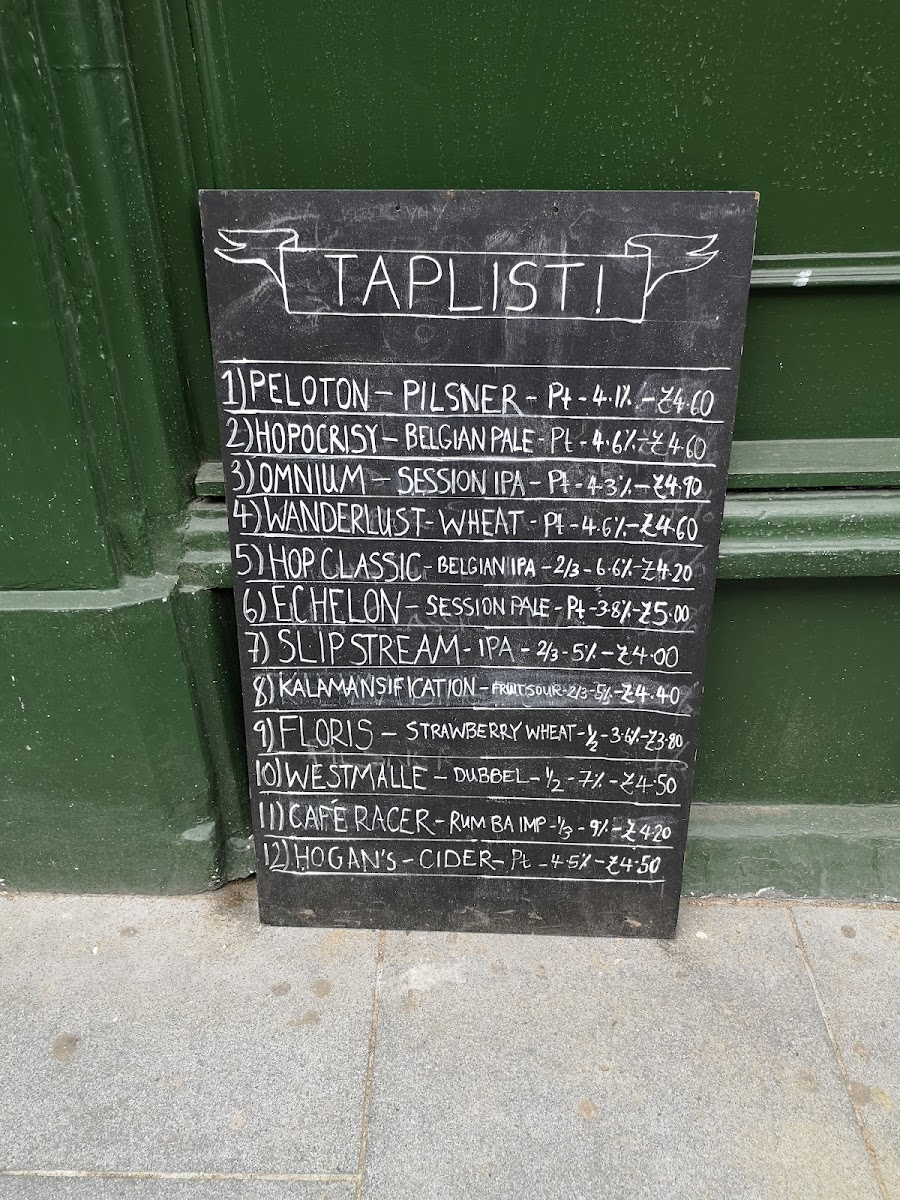 TAPLIST!
1) PELOTON - PILSNER - Pt - 4.1% - £4.60
2) HOPOCRISY - BELGIAN PALE - Pt - 4.6% - £4.60
3) OMNIUM - SESSION IPA - Pt - 4.3% - £4.90
4) WANDERLUST - WHEAT - Pt - 4.6% - £4.60
5) HOP CLASSIC - BELGIAN IPA - 2/3 - 6.6% - £4.20
6) ECHELON - SESSION PALE - Pt - 3.8% - £5.00
7) SLIP STREAM - IPA - 2/3 - 5% - £4.00
8) KALAMANSIFICATION - FRUIT SOUR - 2/3 - 5% - £4.40
9) FLORIS - STRAWBERRY WHEAT - 1/2 - 3.6% - £3.80
10) WESTMALLE - DUBBEL - 1/2 - 7% - £4.50
11) CAFÉ RACER - RUM BA IMP - 1/3 - 9% - £4.20
12) HOGAN'S - CIDER - Pt - 4.5% - £4.50